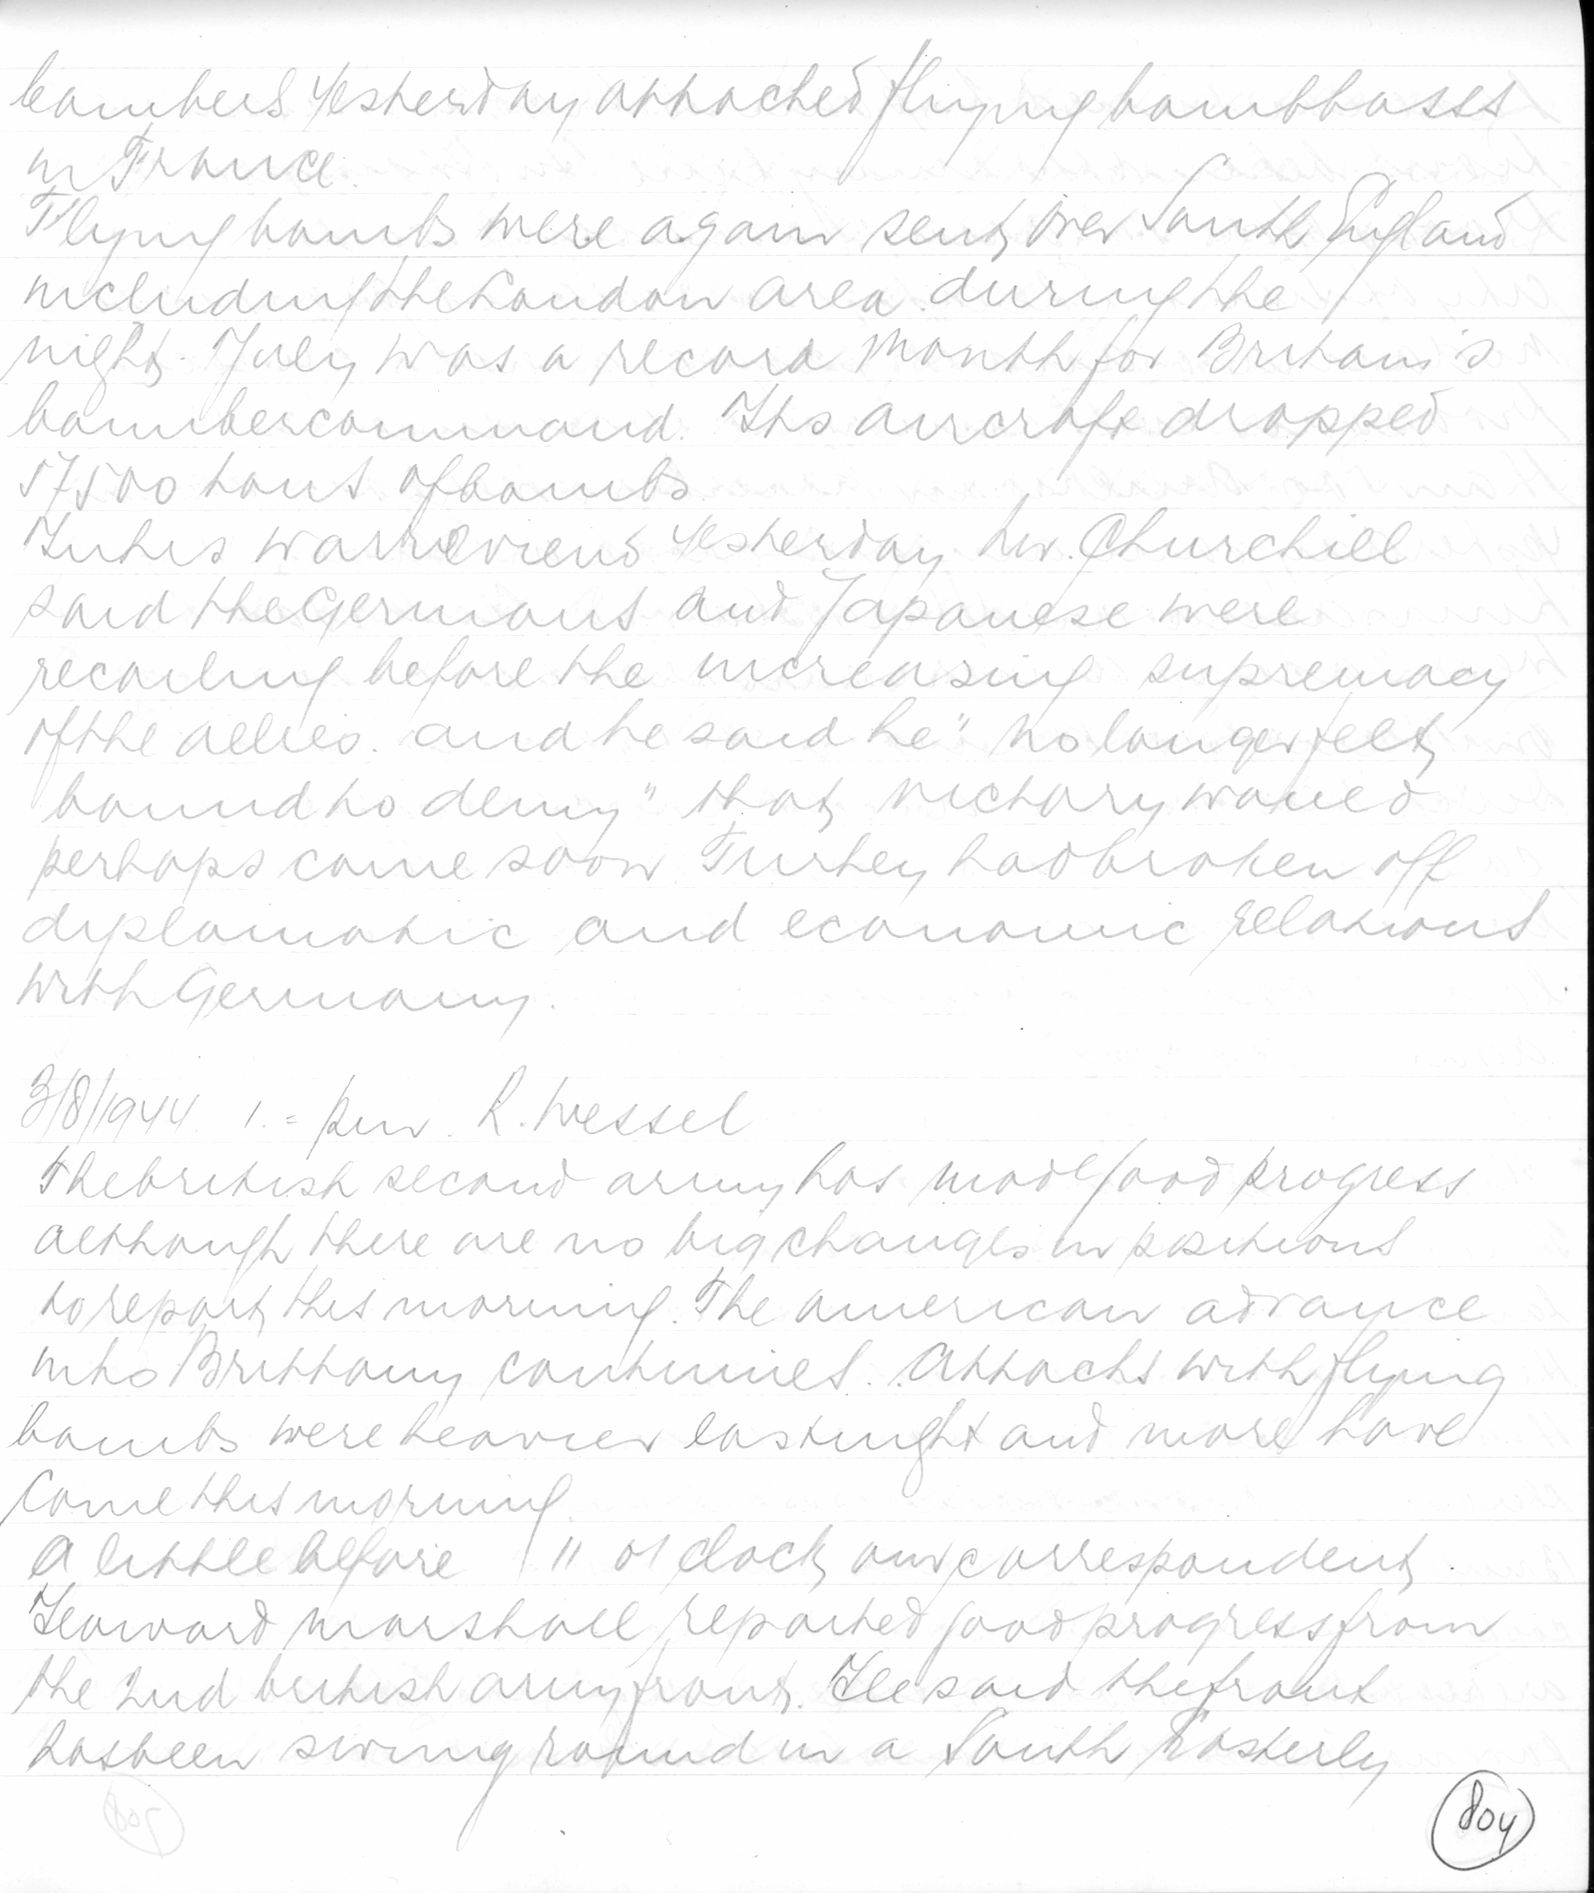 bombers yesterday attacked flying bomb bases
in France.
Flying bombs were again sent over South England
including the London area during the
night. July was a record month for Britain's
bombercommand. Its aircraft dropped
57500 tons of bombs
In his war review yesterday Mr. Churchill
said the Germans and Japanese were
recoiling before the increasing supremacy
of the allies. and he said he "no longer felt
bound to deny" that victory would
perhaps come soon. Turkey had broken off
diplomatic and economic relations
with Germany.
3/8/1944 1.= p.m. R. Wessel
The british second army has made good progress
although there are no big changes in positions
to report this morning. The american advance
into Brittany continues. Attacks with flying
bombs were heavier last night and more have
come this morning.
A little before 11 o'clock our correspondent
Howard marshall reported good progress from
the 2nd british army front. He said the front
has been swinging round in a South Easterly
804